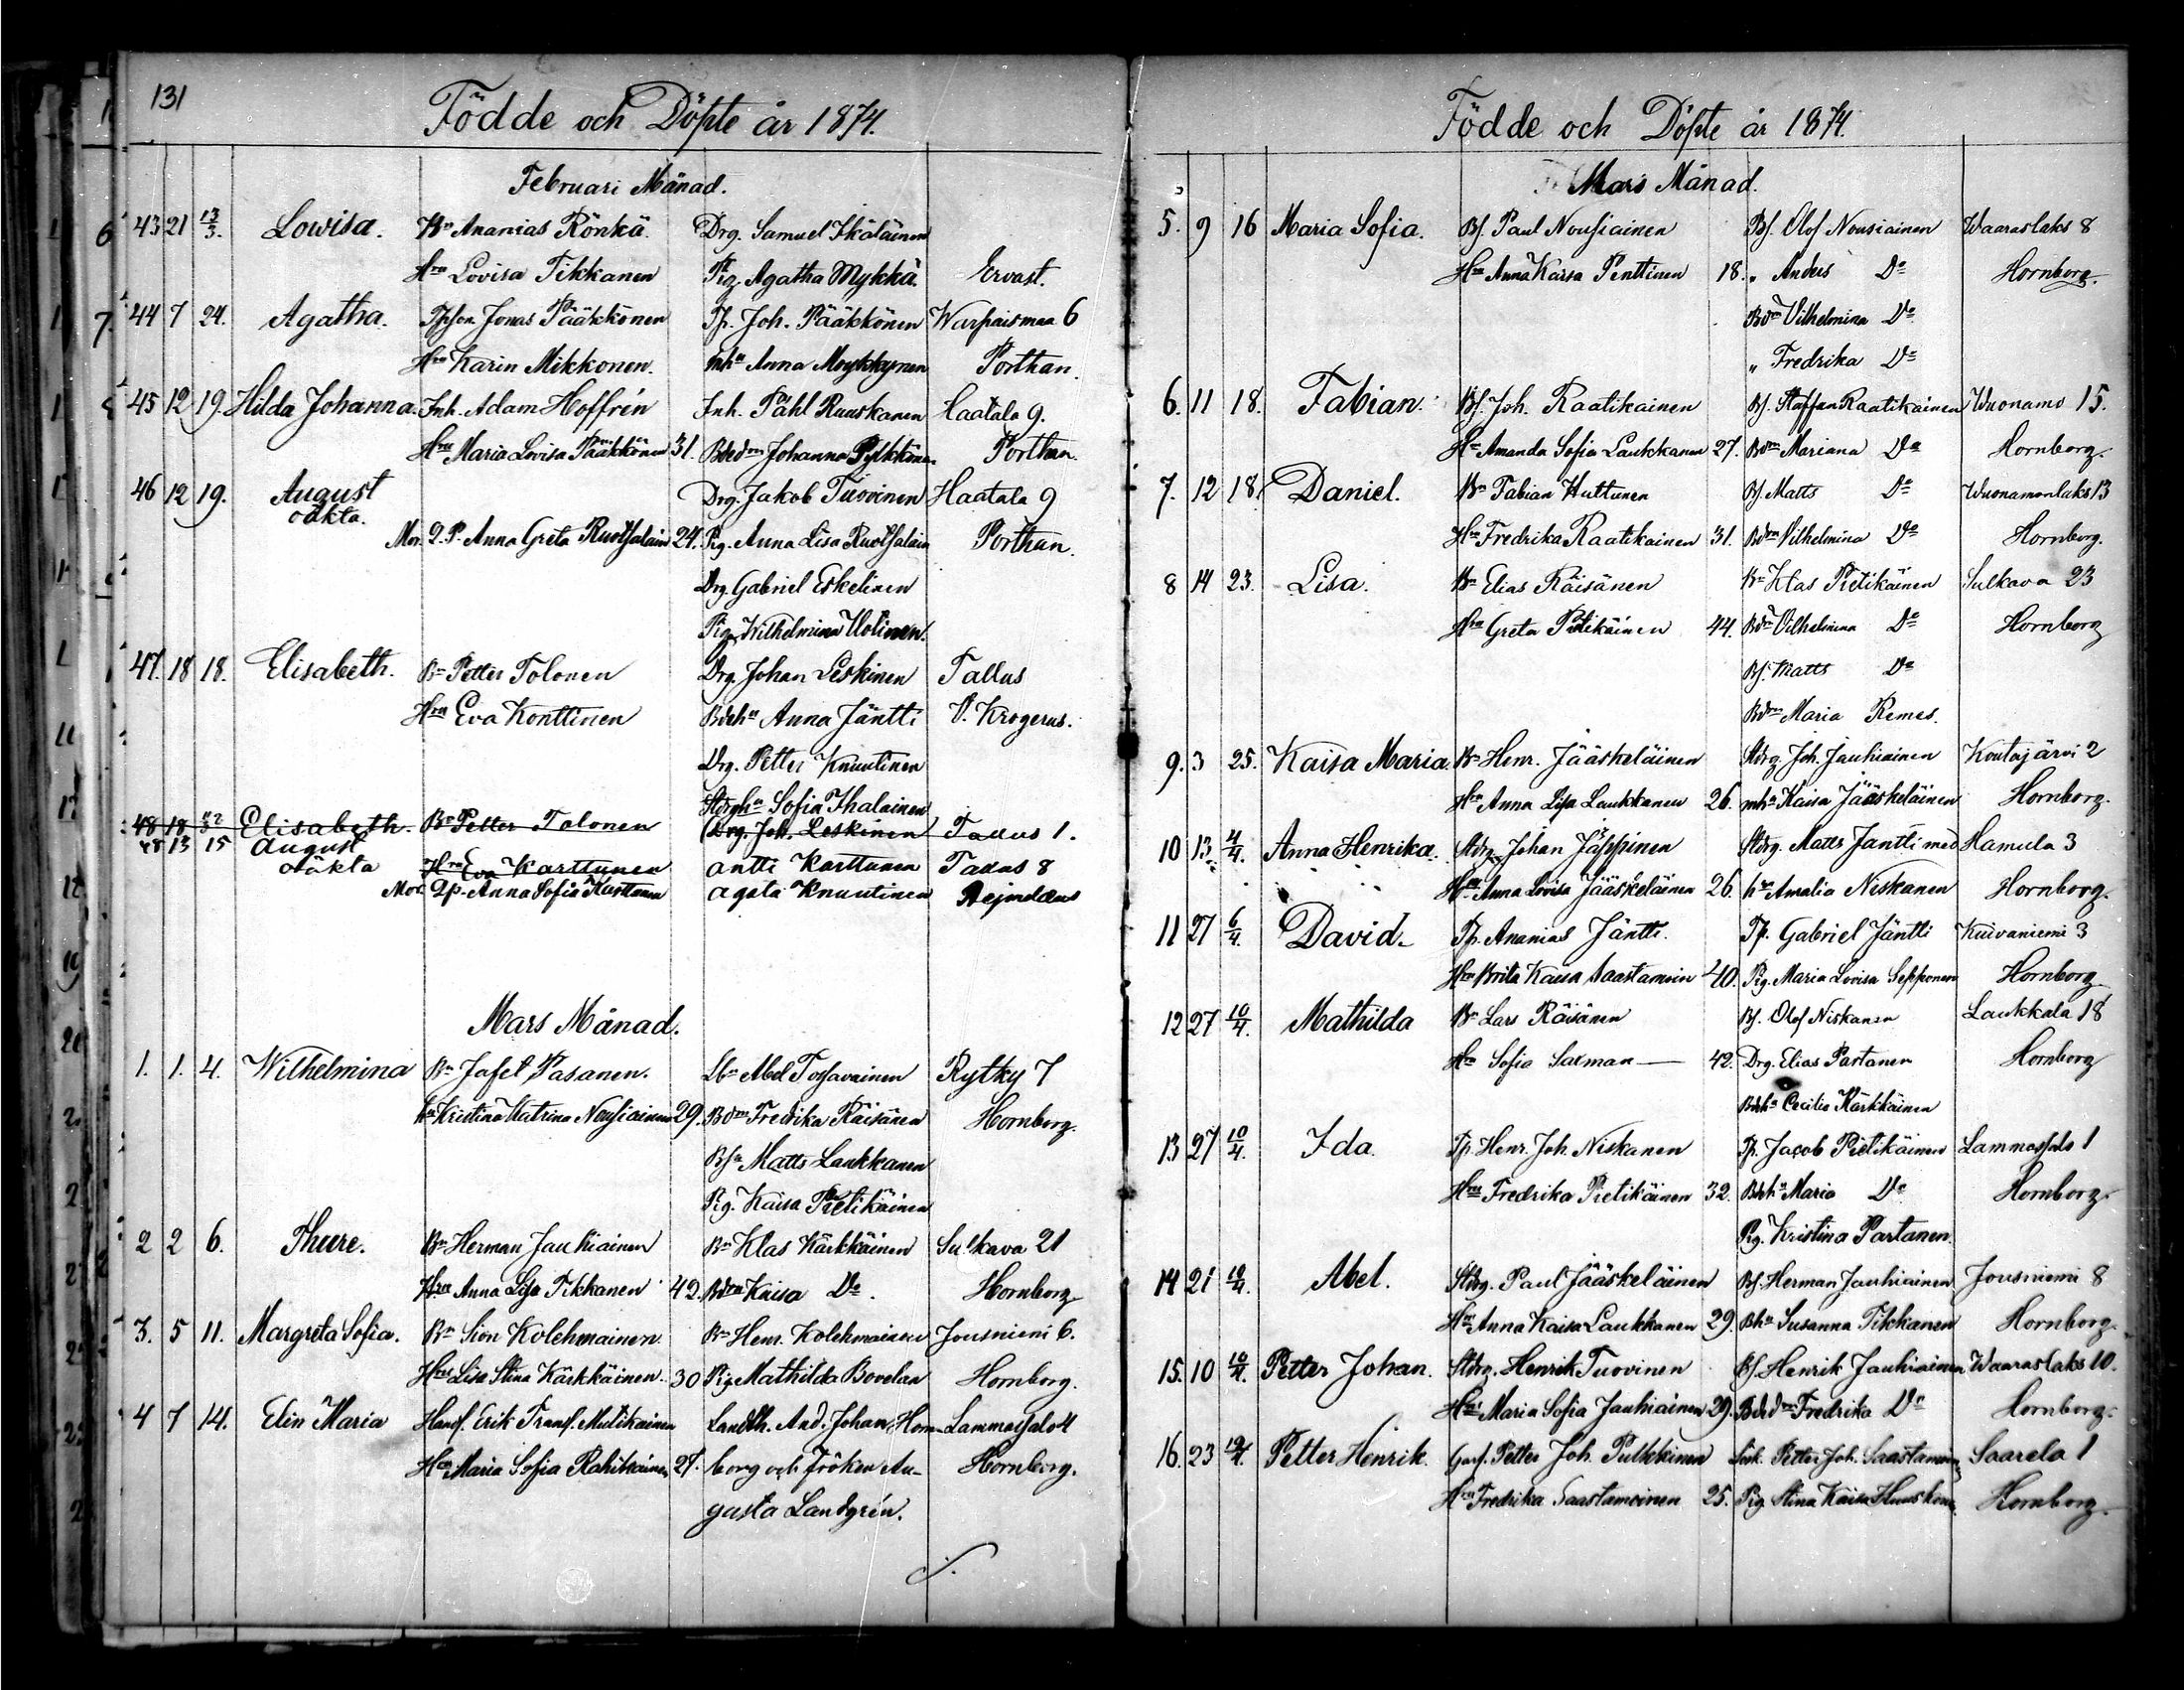 131
Födde och Döpte år 1874.
Februari Månad.
43 21 13/3. Lowisa. Bn Ananias Rönkä. Drg. Samuel Ikäläinen
Hru Lovisa Tikkanen Pig. Agatha Mykkä. Ervast.
44 7 24. Agatha. Jonas Pääkkönen Tp. Joh. Pääkkönen Warpaismaa 6
Hru Karin Mikkonen. Inha Anna Moykkynen Porthan.
45 12 19. Hilda Johanna. Inh. Adam Hoffrén Inh. Påhl Ruuskanen Haatala 9.
Hru Maria Lovisa Pääkkönen 31. Johanna Pylkkönen Porthan.
46 12 19. August Drg. Jakob Tuovinen Haatala 9
oäkta.
Mor. Q.P. Anna Greta Ruotsalain 24. Pig. Anna Lisa Ruotsalain Porthan.
Drg. Gabriel Eskelinen
Pig. Wilhelmina Uotinen.
47. 18 18. Elisabeth. Bn Petter Tolonen Drg. Johan Leskinen Tallus
Hru Eva Konttinen Bdrha Anna Jäntti V. Krogerus.
Drg. Petter Knuutinen
Sofia Ihalainen
48 18 Elisabeth. Bn Petter Tolonen Drg. Joh. Leskinen Tallus 1.
48 13 15 August
oäkta Hru Eva Karttunen Antti Karttunen Tallus 8
Mor. Qp. Anna Sofia Karttunen Agata Knuutinen Aejmelæus
Mars Månad.
1. 1. 4. Wilhelmina Bn Jafet Pasanen. Lbn Abel Tossavainen Rytky 7
Hru Kristina Katrina Nousiainen 29. Bdm Fredrika Räisänen Hornborg.
Matts Laukkanen
Pig. Kaisa Pietikäinen
2 2 6. Thure. Bn Herman Jauhiainen Bn Klas Kärkkäinen Sulkava 21
Hru Anna Lisa Tikkanen 42. Bdm Kaisa Do. Hornborg
3. 5 11. Margreta Sofia. Bn Sion Kolehmainen. Bn Henr. Kolehmainen Jousniemi 6.
Hru Lisa Stina Kärkkäinen. 30 Pig. Mathilda Bovelan Hornborg.
4 7 14. Elin Maria Handl. Erik Transf. Mutikainen Landth. And. Johan Horn- Lammassalo 4
Hru Maria Sofia Rahikainen 27. borg och Fröken Au- Hornborg.
gusta Landgrén.
Födde och Döpte år 1874.
Mars Månad.
5. 9 16 Maria Sofia. Bs. Paul Nousiainen Bs. Olof Nousiainen Waaraslaks 8
Hru Anna Kaisa Penttinen 18. " Anders Do Hornborg.
Bdm Vilhelmina Do
" Fredrika Do
6. 11 18. Fabian. Bs. Joh. Raatikainen Bs. Staffan Raatikainen Wuonamo 15.
Hu Amanda Sofia Laukkanen 27. Bdm Mariana Do Hornborg.
7. 12 18. Daniel. Bn Fabian Huttunen Bs. Matts Do Wuonamonlaks 13
Hru Fredrika Raatikainen 31. Bdm Vilhelmina Do Hornborg.
8 14 23. Lisa. Bn Elias Räisänen Bn Klas Pietikäinen Sulkava 23
Hru Greta Pietikäinen 44. Bdm Vilhelmina Do Hornborg
Bs. Matts Do
Bdm Maria Remes.
9. 3 25. Kaisa Maria Bn Henr. Jääskeläinen Stdrg. Joh. Jauhiainen Koutajärvi 2
Hru Anna Lisa Laukkanen 26. mha Kaisa Jääskeläinen Hornborg.
10 13 4/4. Anna Henrika. Stdrg. Johan Jäppinen Stdrg. Matts Jäntti med Hamula 3
Hru Anna Lovisa Jääskeläinen 26. hu Amalia Niskanen Hornborg.
11 27 6/4. David. Tp. Ananias Jäntti. Tp. Gabriel Jäntti Kuivaniemi 3
Hru Brita Kaisa Saastamoin 40. Pig. Maria Lovisa Sepponen Hornborg
12 27 10/4. Mathilda Bn Lars Räisänen Bs. Olof Niskanen Laukkala 18
Hu Sofia Saxman 42. Drg. Elias Partanen Hornborg
Bdrha Cecilia Kärkkäinen
13 27 10/4. Ida. Tp. Henr. Joh. Niskanen Tp. Jacob Pietikäinen Lammassalo 1
Hru Fredrika Pietikäinen 32. Bdrha Maria Do Hornborg.
Pig. Kristina Partanen.
14 21 10/4. Abel. Stdrg. Paul Jääskeläinen Bs. Herman Jauhiainen Jousniemi 8
Hru Anna Kaisa Laukkanen 29. Bha Susanna Tikkanen Hornborg.
15. 10 10/4. Petter Johan. Stdrg. Henrik Tuovinen Bs. Henrik Jauhiainen Waaraslaks 10.
Hru Maria Sofia Jauhiainen 29. Fredrika Do Hornborg.
16. 23 Petter Henrik. Petter Joh. Pulkkinen Petter Joh. Saastamoin Saarela 1
Hru Fredrika Saastamoinen 25. Pig Stina Kaisa Huuskon Hornborg.